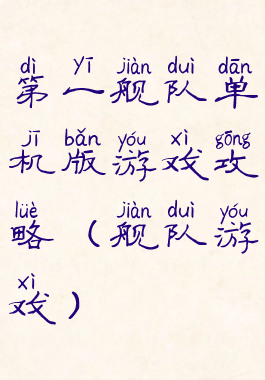 dì yī jiàn duì dān
第一舰队单
jī bǎn yóu xì gōng
机版游戏攻
lüè jiàn duì yóu
略（舰队游
xì
戏）